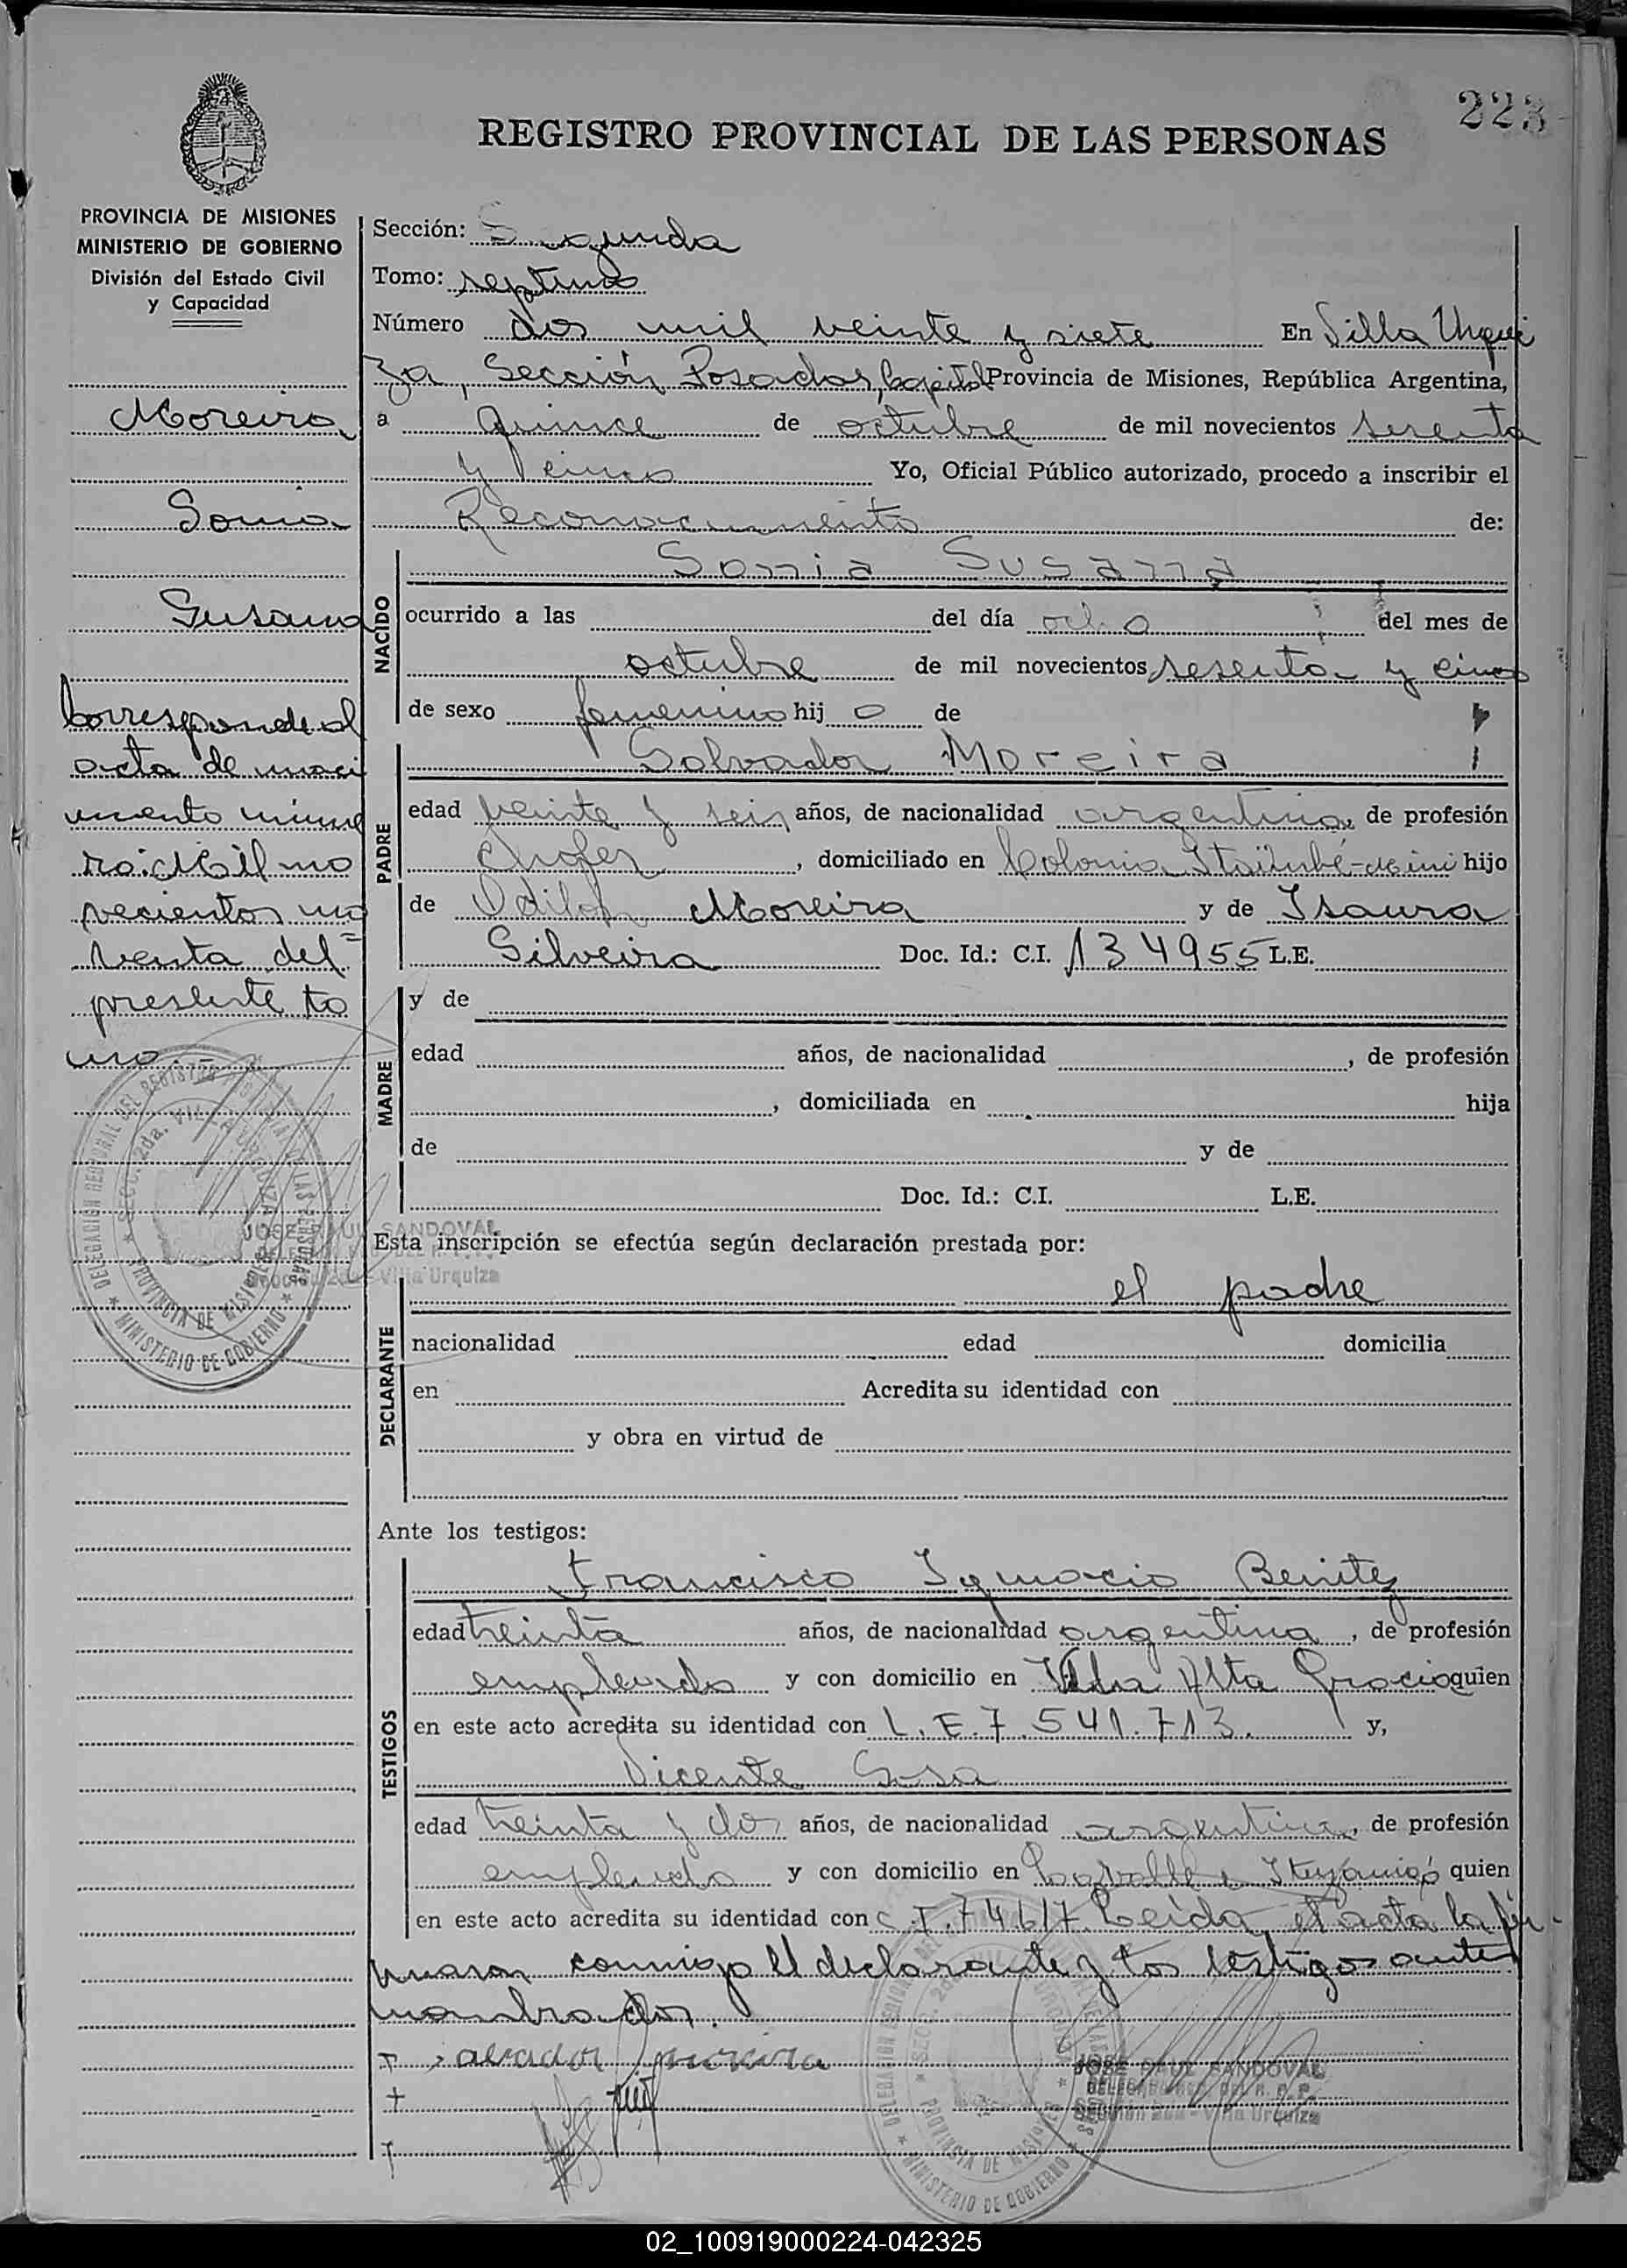 223
REGISTRO PROVINCIAL DE LAS PERSONAS
PROVINCIA DE MISIONES
MINISTERIO DE GOBIERNO
División del Estado Civil
y Capacidad
Moreira
Sonia
Susana
Corresponde al
acta de naci
miento núme
ro: Mil no
vecientos no
venta del
presente to
mo.
DELEGACION REGIONAL DEL REGISTRO PROVINCIAL DE LAS PERSONAS
SECC. 2da. VILLA URQUIZA
PROVINCIA DE MISIONES
MINISTERIO DE GOBIERNO
JOSE RAUL SANDOVAL
Sección 2da - Villa Urquiza
Sección: Segunda
Tomo: septimo
Número dos mil veinte y siete En Villa Urqui
za, Sección Posadas, Capital Provincia de Misiones, República Argentina,
a quince de octubre de mil novecientos sesenta
y cinco Yo, Oficial Público autorizado, procedo a inscribir el
Reconocimiento de:
NACIDO
Sonia Susana
ocurrido a las del día ocho del mes de
octubre de mil novecientos sesenta y cinco
de sexo femenino hij o de
PADRE
Salvador Moreira
edad veinte y seis años, de nacionalidad argentina, de profesión
chofer, domiciliado en Colonia Itaimbé-Mini hijo
de Odilon Moreira y de Isaura
Silveira Doc. Id.: C.I. 134955 L.E.
MADRE
y de
edad años, de nacionalidad , de profesión
, domiciliada en hija
de y de
Doc. Id.: C.I. L.E.
Esta inscripción se efectúa según declaración prestada por:
DECLARANTE
el padre
nacionalidad edad domicilia
en Acredita su identidad con
y obra en virtud de
Ante los testigos:
TESTIGOS
Francisco Ignacio Benitez
edad treinta años, de nacionalidad argentina, de profesión
empleado y con domicilio en Villa Alta Gracia quien
en este acto acredita su identidad con L.E. 7.541.713. y,
Vicente Sosa
edad treinta y dos años, de nacionalidad argentina, de profesión
empleado y con domicilio en Ituzaingó quien
en este acto acredita su identidad con C.I. 74617 Leida el acta la fir-
maron conmigo el declarante y los testigos ante
nombrados.
+ Salvador Moreira
+
+
JOSE RAUL SANDOVAL
DELEGADO DEL R. P. P.
Sección 2da - Villa Urquiza
DELEGACION REGIONAL DEL
SECC. 2da. VILLA URQUIZA
PROVINCIA DE MISIONES
MINISTERIO DE GOBIERNO
02_100919000224-042325